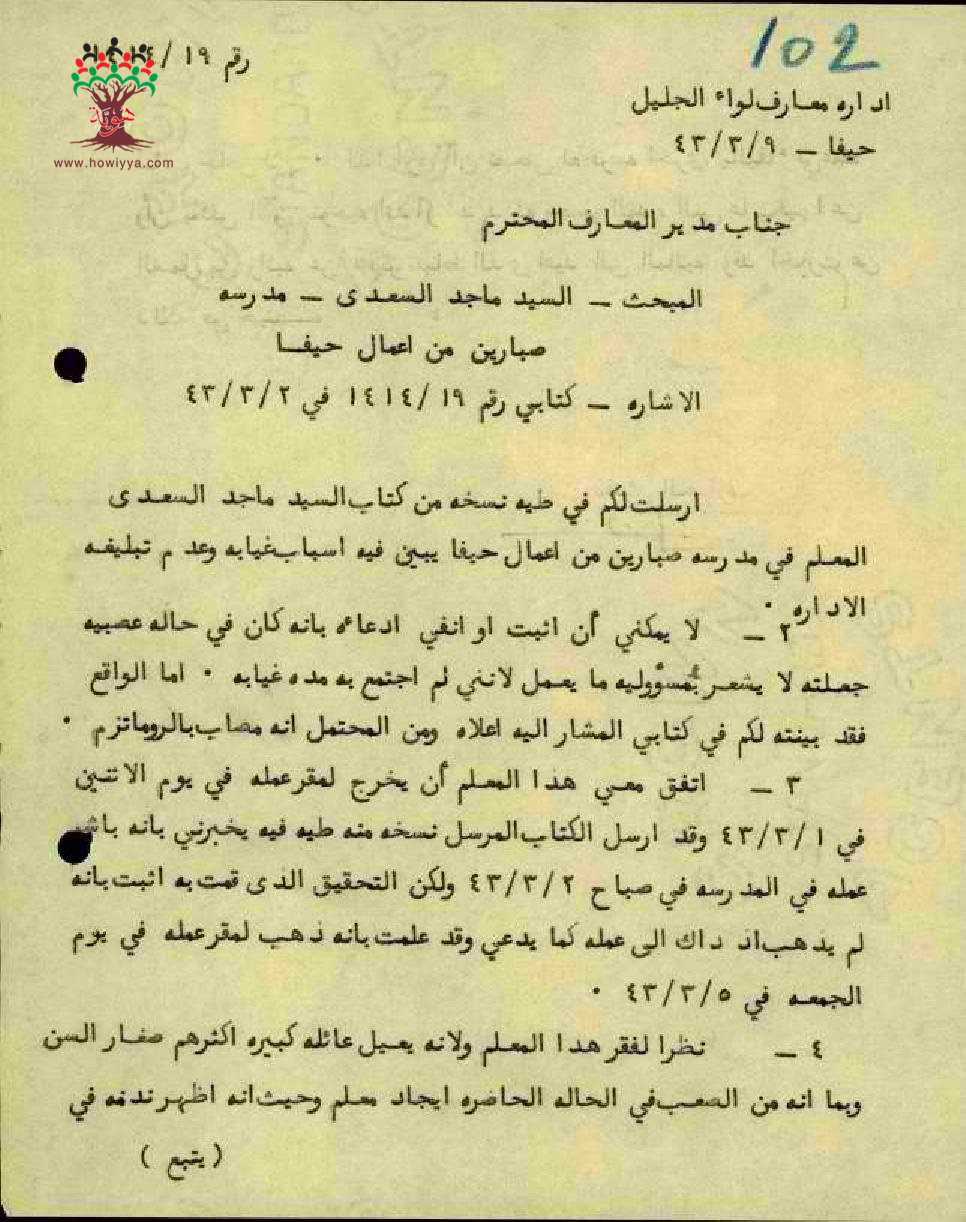 102
رقم ١٩/
هوية
www.howiyya.com
اداره معارف لواء الجليل
حيفا – ٤٣/٣/٩
جناب مدير المعارف المحترم
المبحث – السيد ماجد السعدى – مدرسه
صبارين من اعمال حيفا
الاشاره – كتابي رقم ١٤١٤/١٩ في ٤٣/٣/٢
ارسلت لكم في طيه نسخه من كتاب السيد ماجد السعدى
المعلم في مدرسه صبارين من اعمال حيفا يبين فيه اسباب غيابه وعدم تبليغه
الاداره ٠
٢ – لا يمكنني أن اثبت او انفي ادعاءه بانه كان في حاله عصبيه
جعلته لا يشعر بمسؤوليه ما يعمل لانني لم اجتمع به مده غيابه ٠ اما الواقع
فقد بينته لكم في كتابي المشار اليه اعلاه ومن المحتمل انه مصاب بالروماتزم ٠
٣ – اتفق معي هدا المعلم أن يخرج لمقر عمله في يوم الاثنين
في ٤٣/٣/١ وقد ارسل الكتاب المرسل نسخه منه طيه فيه يخبرني بانه باشر
عمله في المدرسه في صباح ٤٣/٣/٢ ولكن التحقيق الدى قمت به اثبت بانه
لم يدهب اد داك الى عمله كما يدعي وقد علمت بانه دهب لمقر عمله في يوم
الجمعه في ٤٣/٣/٥ ٠
٤ – نظرا لفقر هدا المعلم ولانه يعيل عائله كبيره اكثرهم صغار السن
وبما انه من الصعب في الحاله الحاضره ايجاد معلم وحيث انه اظهر ندمه في
( يتبع )